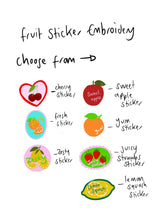 fruit sticker embroidery
choose from
cherry
sticker
Sweet
apple
sweet
apple
sticker
fresh
sticker
yum
sticker
zesty
sticker
juicy
sticker
lemon
squash
sticker